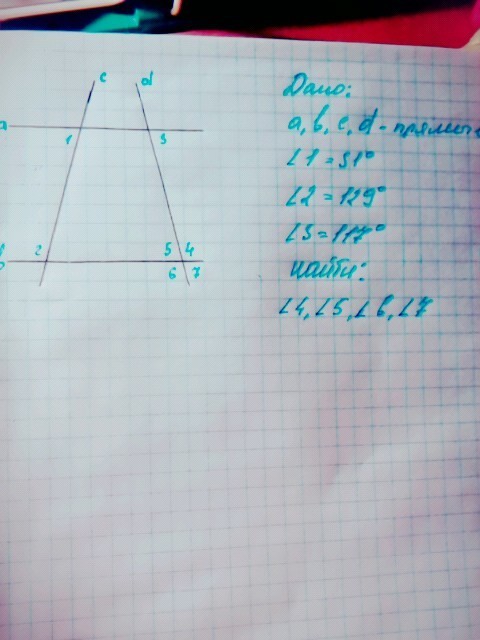 c d
a
1 3
b
2 5 4
6 7
Дано:
a, b, c, d - прямые
∠1 = 51°
∠2 = 129°
∠3 = 117°
найти:
∠4, ∠5, ∠6, ∠7